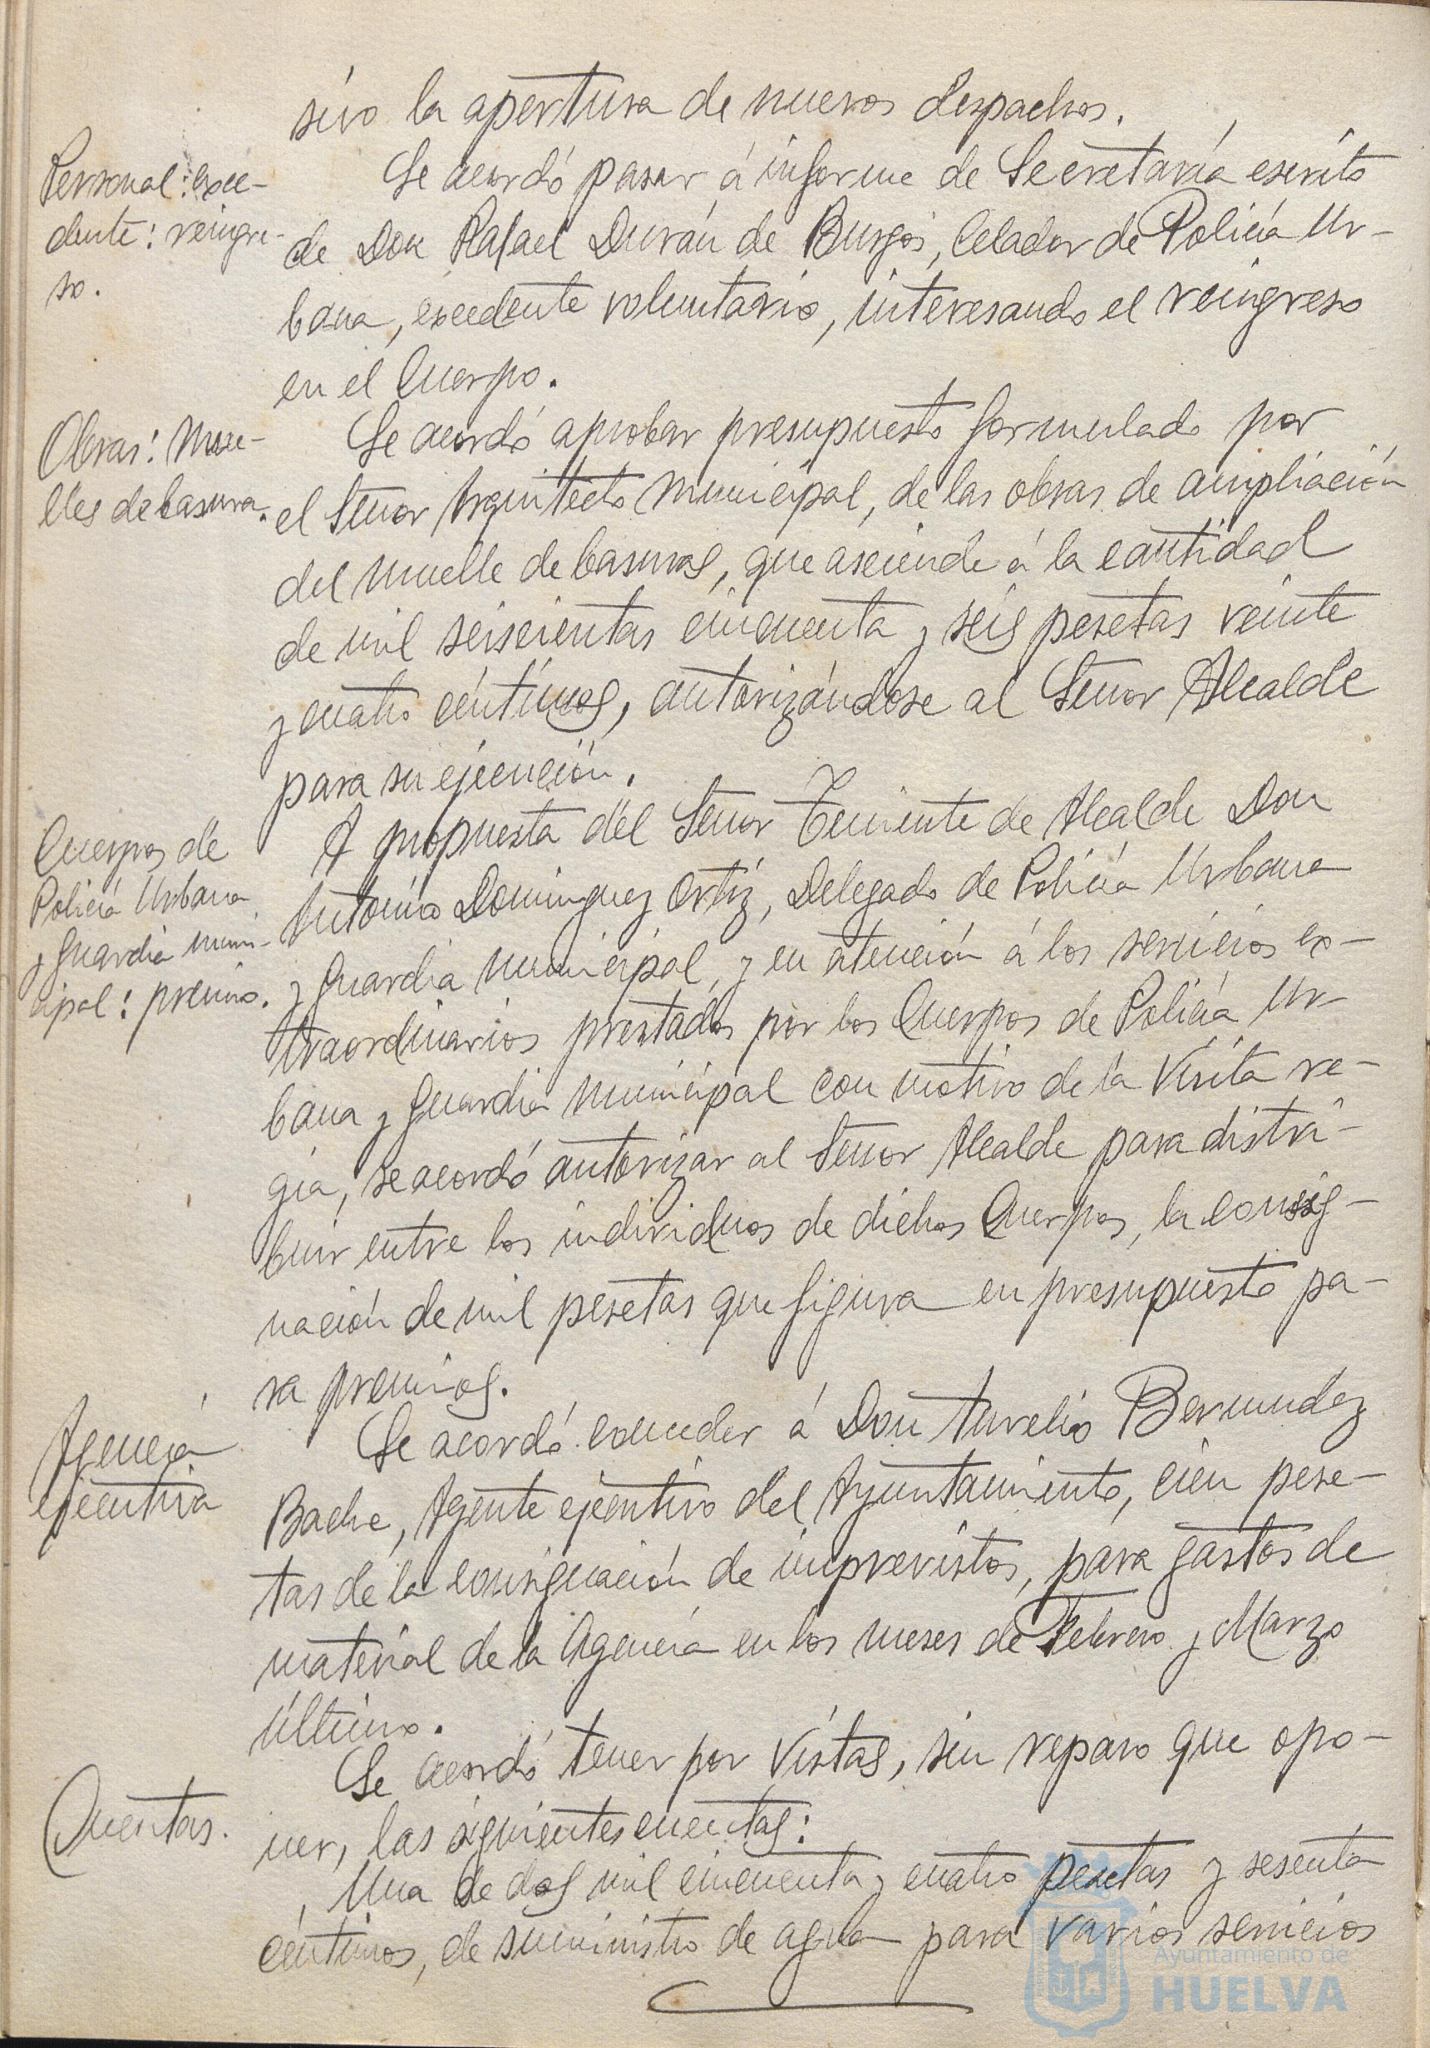 sivo la apertura de nuevos despachos.
Personal: exce-
dente: reingre-
so.
Se acordó pasar á informe de Secretaría escrito
de Don Rafael Durán de Burgos, Celador de Policía Ur-
bana, excedente voluntario, interesando el reingreso
en el Cuerpo.
Obras: Mue-
lles de basura.
Se acordó aprobar presupuesto formulado por
el Señor Arquitecto Municipal, de las obras de ampliación
del muelle de basuras, que asciende á la cantidad
de mil seiscientas cincuenta y seis pesetas veinte
y cuatro céntimos, autorizándose al Señor Alcalde
para su ejecución.
Cuerpos de
Policía Urbana
y Guardia muni-
cipal: premios.
A propuesta del Señor Teniente de Alcalde Don
Antonio Dominguez Ortiz, Delegado de Policía Urbana
y Guardia municipal, y en atención á los servicios ex-
traordinarios prestados por los Cuerpos de Policía Ur-
bana y Guardia municipal con motivo de la Visita re-
gia, se acordó autorizar al Señor Alcalde para distri-
buir entre los individuos de dichos Cuerpos, la consig-
nación de mil pesetas que figura en presupuesto pa-
ra premios.
Agencia
ejecutiva
Se acordó conceder á Don Aurelio Bermudez
Bache, Agente ejecutivo del Ayuntamiento, cien pese-
tas de la consignación de imprevistos, para gastos de
material de la Agencia en los meses de Febrero y Marzo
último.
Cuentas.
Se acordó tener por vistas, sin reparo que opo-
ner, las siguientes cuentas:
Una de dos mil cincuenta y cuatro pesetas y sesenta
céntimos, de suministro de agua para varios servicios
Ayuntamiento de
HUELVA